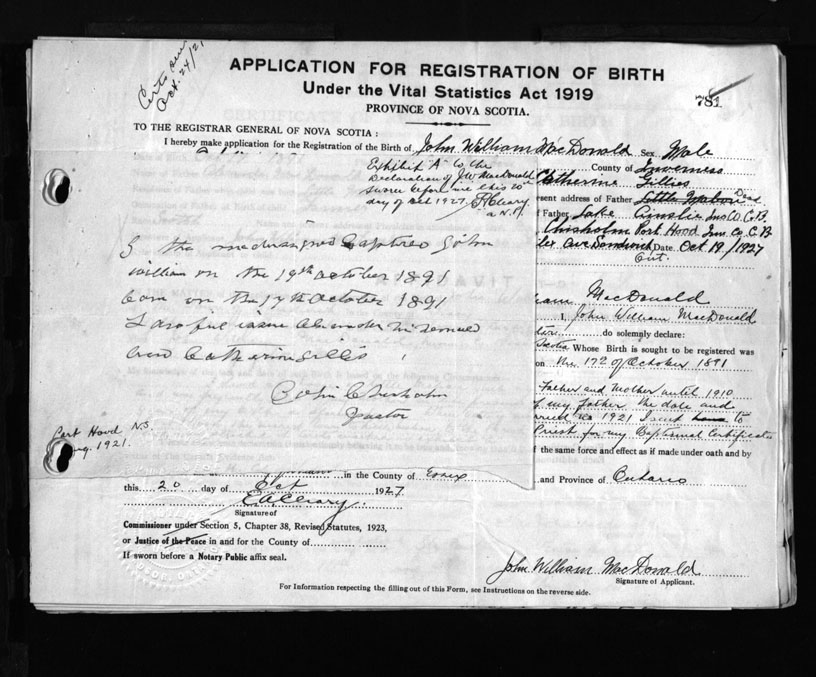 Certs sent
Oct. 24/21
APPLICATION FOR REGISTRATION OF BIRTH
Under the Vital Statistics Act 1919
PROVINCE OF NOVA SCOTIA.
781
TO THE REGISTRAR GENERAL OF NOVA SCOTIA:
I hereby make application for the Registration of the Birth of John William MacDonald Sex Male
County of Inverness
Catherine Gillies
resent address of Father Little Mabou Dead
f Father Lake Ainslie Inv. Co. C. B.
Chisholm Port Hood Inv. Co. C. B.
Ave Sandwich Date Oct 19/1927
Ont.
Exhibit "A" to the
Declaration of J W MacDonald
sworn before me this 20th
day of Oct 1927.
a N.P.
I the undersigned Baptized John
William on the 19th October 1891
born on the 17th October 1891
Lawful issue Alexander McDonald
and Catharine Gillis
Colin Chisholm
Pastor
Port Hood N.S.
Aug. 1921.
liam MacDonald
I, John William MacDonald
do solemnly declare:
Scotia Whose Birth is sought to be registered was
on the 17th of October 1891
Father and Mother until 1910
of my father. The date and
in 1921 I sent to
Priest for my Baptismal Certificate
f the same force and effect as if made under oath and by
in the County of Essex and Province of Ontario
this 20 day of Oct 1927
Signature of
Commissioner under Section 5, Chapter 38, Revised Statutes, 1923,
or Justice of the Peace in and for the County of
If sworn before a Notary Public affix seal.
John William MacDonald
Signature of Applicant.
For Information respecting the filling out of this Form, see Instructions on the reverse side.